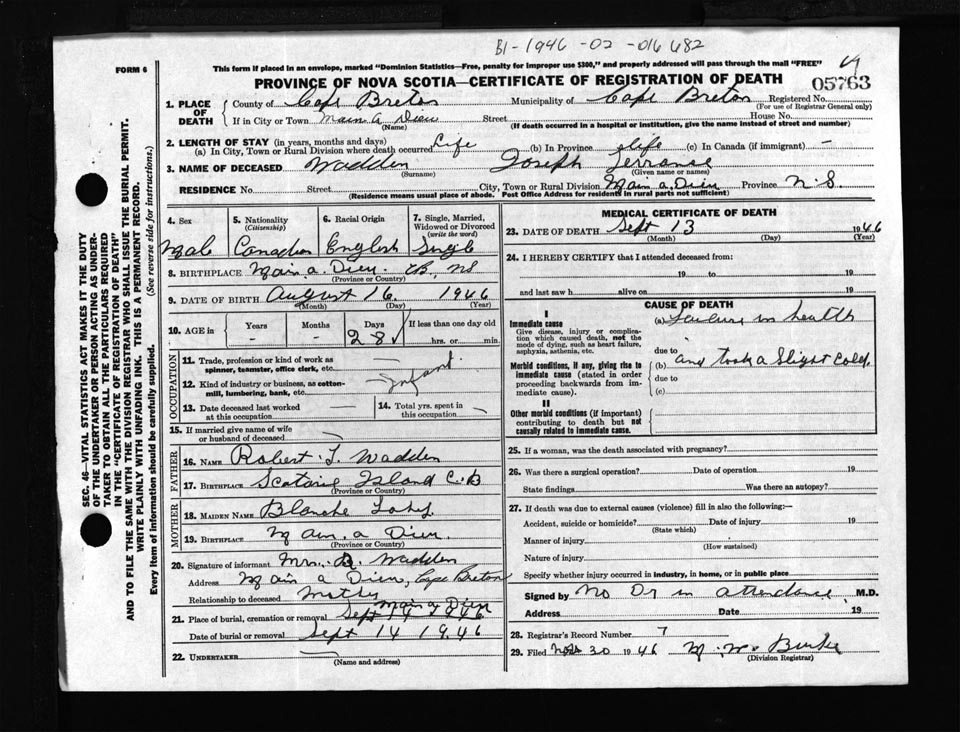 B1-1946-02-016682
FORM 6
This form if placed in an envelope, marked "Dominion Statistics—Free, penalty for improper use $300," and properly addressed will pass through the mail "FREE"
PROVINCE OF NOVA SCOTIA—CERTIFICATE OF REGISTRATION OF DEATH
05763
1. PLACE OF DEATH
County of Cape Breton Municipality of Cape Breton Registered No.
(For use of Registrar General only)
If in City or Town Main a Dieu Street House No.
(Name) (If death occurred in a hospital or institution, give the name instead of street and number)
2. LENGTH OF STAY (in years, months and days)
(a) In City, Town or Rural Division where death occurred Life (b) In Province Life (c) In Canada (if immigrant) —
3. NAME OF DECEASED Wadden Joseph Terrance
(Surname) (Given name or names)
RESIDENCE No. Street City, Town or Rural Division Main a Dieu Province N.S.
(Residence means usual place of abode. Post Office Address for Residents in rural parts not sufficient)
4. Sex Male
5. Nationality (Citizenship) Canadian
6. Racial Origin English
7. Single, Married, Widowed or Divorced (write the word) Single
8. BIRTHPLACE Main a Dieu CB, NS
(Province or Country)
9. DATE OF BIRTH August 16 1946
(Month) (Day) (Year)
10. AGE in Years - Months - Days 28 If less than one day old hrs. or min.
OCCUPATION
11. Trade, profession or kind of work as spinner, teamster, office clerk, etc.
12. Kind of industry or business, as cotton-mill, lumbering, bank, etc.
Infant
13. Date deceased last worked at this occupation
14. Total yrs. spent in this occupation
15. If married give name of wife or husband of deceased
FATHER
16. NAME Robert T. Wadden
17. BIRTHPLACE Scatarie Island C.B
(Province or Country)
MOTHER
18. MAIDEN NAME Blanche
19. BIRTHPLACE Main a Dieu
(Province or Country)
20. Signature of informant Mrs. B. Wadden
Address Main a Dieu, Cape Breton
Relationship to deceased Mother
Main a Dieu
21. Place of burial, cremation or removal Sept 14 1946
Date of burial or removal Sept 14 1946
22. UNDERTAKER
(Name and address)
MEDICAL CERTIFICATE OF DEATH
23. DATE OF DEATH Sept 13 1946
(Month) (Day) (Year)
24. I HEREBY CERTIFY that I attended deceased from:
19 to 19
and last saw h alive on 19
CAUSE OF DEATH
I
Immediate cause
Give disease, injury or complication which caused death, not the mode of dying, such as heart failure, asphyxia, asthenia, etc.
(a) Failure in health
due to
Morbid conditions, if any, giving rise to immediate cause (stated in order proceeding backwards from immediate cause).
(b) and took a slight cold.
due to
(c)
II
Other morbid conditions (if important) contributing to death but not causally related to immediate cause.
25. If a woman, was the death associated with pregnancy?
26. Was there a surgical operation? Date of operation 19
State findings Was there an autopsy?
27. If death was due to external causes (violence) fill in also the following:—
Accident, suicide or homicide? Date of injury 19
(State which)
Manner of injury
(How sustained)
Nature of injury
Specify whether injury occurred in industry, in home, or in public place
Signed by No Dr in attendance M.D.
Address Date 19
28. Registrar's Record Number 7
29. Filed 30 1946 M. W. Burke
(Division Registrar)
SEC. 46—VITAL STATISTICS ACT MAKES IT THE DUTY
OF THE UNDERTAKER OR PERSON ACTING AS UNDER-
TAKER TO OBTAIN ALL THE PARTICULARS REQUIRED
IN THE "CERTIFICATE OF REGISTRATION OF DEATH"
AND TO FILE THE SAME WITH THE DIVISION REGISTRAR WHO SHALL ISSUE THE BURIAL PERMIT.
WRITE PLAINLY WITH UNFADING INK. THIS IS A PERMANENT RECORD.
Every item of information should be carefully supplied. (See reverse side for instructions.)